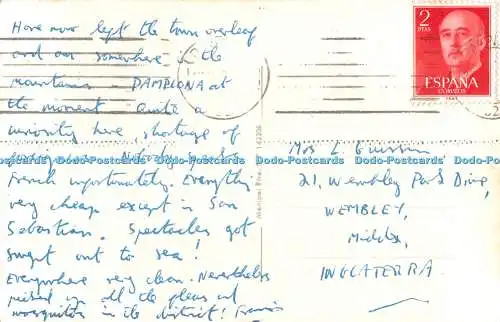 Have now left the town overleaf
and are somewhere in the
mountains - PAMPLONA at
the moment. Quite a
curiosity here, shortage of
Nobody speaks
French unfortunately. Everything
very cheap except in San
Sebastian. Spectacles got
swept out to sea!
Everywhere very clean. Nevertheless
in all the fleas and
mosquitos in the district! Francis
142206
2
PTAS
ESPAÑA
CORREOS
Mrs L
21, Wembley Park Drive,
WEMBLEY,
Middx,
INGLATERRA.
Dodo-Postcards Dodo-Postcards Dodo-Postcards Dodo-Postcards Dodo-Postcards Dodo-Postcards